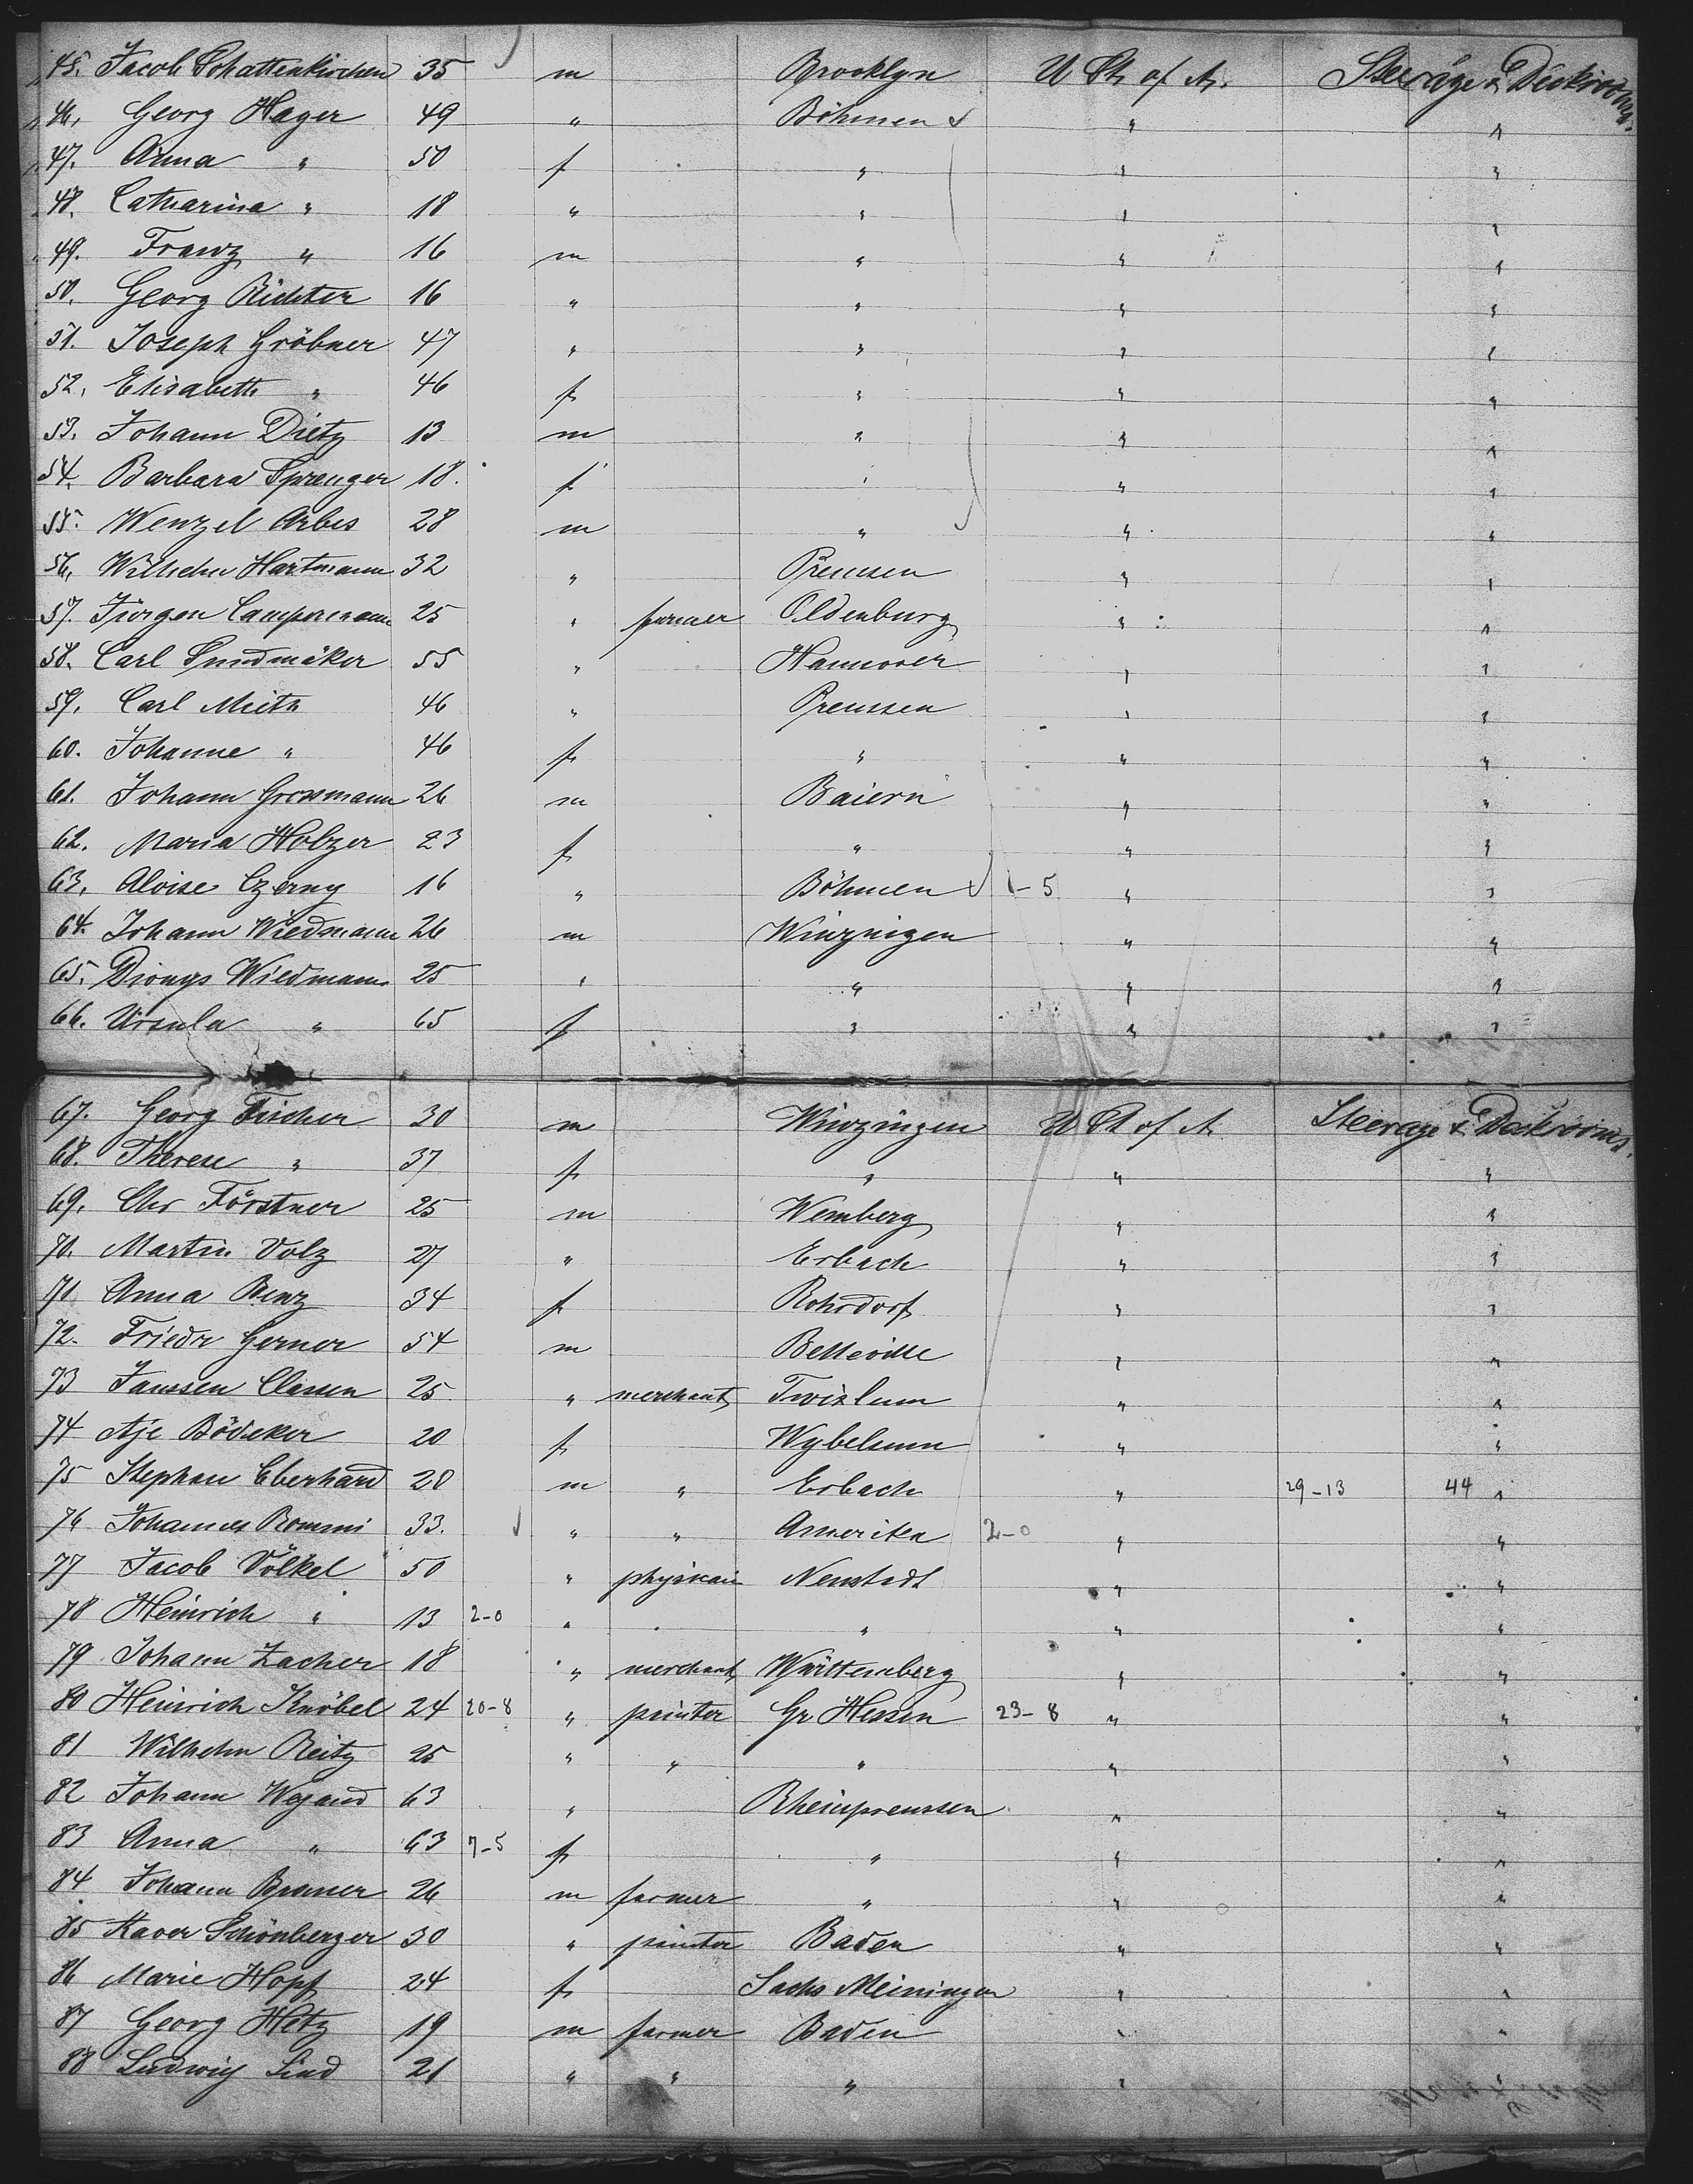 45. Jacob Schattenkirchen 35 m Brooklyn U St. of A. Steerage & Deckrooms.
46. Georg Hager 49 " Böhmen " "
47. Anna " 50 f " " "
48. Catharina " 18 " " " "
49. Franz " 16 m " " "
50. Georg Richter 16 " " " "
51. Joseph Gröbner 47 " " " "
52. Elisabeth " 46 f " " "
53. Johann Dietz 13 m " " "
54. Barbara Sprenger 18. f " " "
55. Wenzel Arbes 28 m " " "
56. Wilhelm Hartmann 32 " Preussen " "
57. Jürgen Campermann 25 " farmer Oldenburg " "
58. Carl Sundmäker 55 " Hannover " "
59. Carl Mieth 46 " Preussen " "
60. Johanne " 46 f " " "
61. Johann Grossmann 26 m Baiern " "
62. Maria Holzer 23 f " " "
63. Aloise Czerny 16 " Böhmen 1-5 " "
64. Johann Wiedmann 26 m Winzingen " "
65. Dionys Wiedmann 25 " " " "
66. Ursula " 65 f " " "
67. Georg Fischer 30 m Winzingen U St of A. Steerage & Deckrooms.
68. Therese " 37 f " " "
69. Chr Förstner 25 m Wemberg " "
70. Martin Volz 27 " Erbach " "
71 Anna Benz 34 f Rohrdorf " "
72. Friedr Gerner 54 m Belleville " "
73 Janssen Classen 25 " merchant Twixlum " "
74 Atje Bödeker 20 f Wybelsum " "
75 Stephan Eberhard 28 m " Erbach " 29-13 44 "
76 Johannes Rommi 33. " " Amerika 2-0 " "
77 Jacob Völkel 50 " physician Neustadt " "
78 Heinrich " 13 2-0 " " " "
79 Johann Zacher 18 " merchant Württemberg " "
80 Heinrich Knöbel 24 20-8 " painter Gr Hessen 23-8 " "
81 Wilhelm Reitz 25 " " " " "
82 Johann Wegand 63 " Rheinpreussen " "
83 Anna " 63 7-5 f " " "
84. Johann 26 m farmer " " "
85 Xaver Schönberger 30 " painter Baden " "
86 Marie Hopf 24 f Sachs Meiningen " "
87 Georg Hetz 19 m farmer Baden " "
88 Ludwig Lind 21 " " " " "